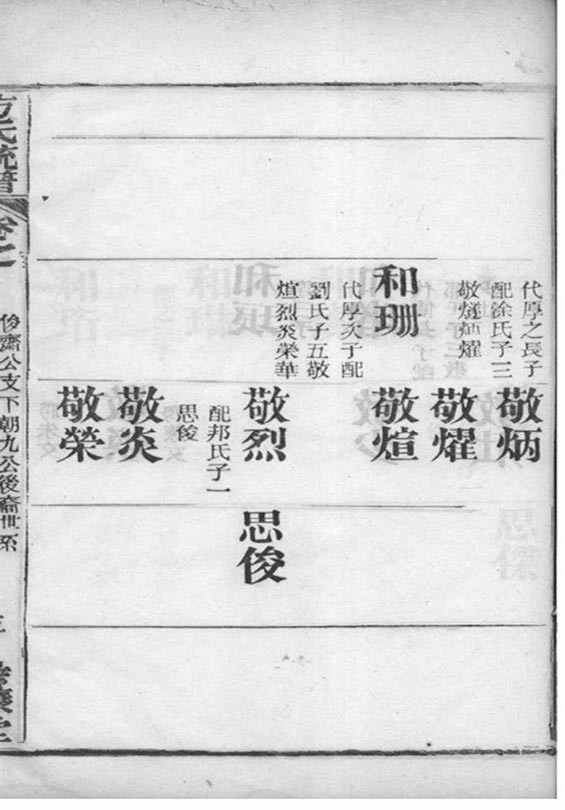 代厚之長子
配徐氏子三
敬燧炳燿
敬炳
敬燿
和珊
代厚次子配
劉氏子五敬
煊烈炎榮華
敬煊
敬烈
配邦氏子一
思俊
思俊
敬炎
敬榮
方氏統譜
卷之一
俊齋公支下朝九公後裔世系